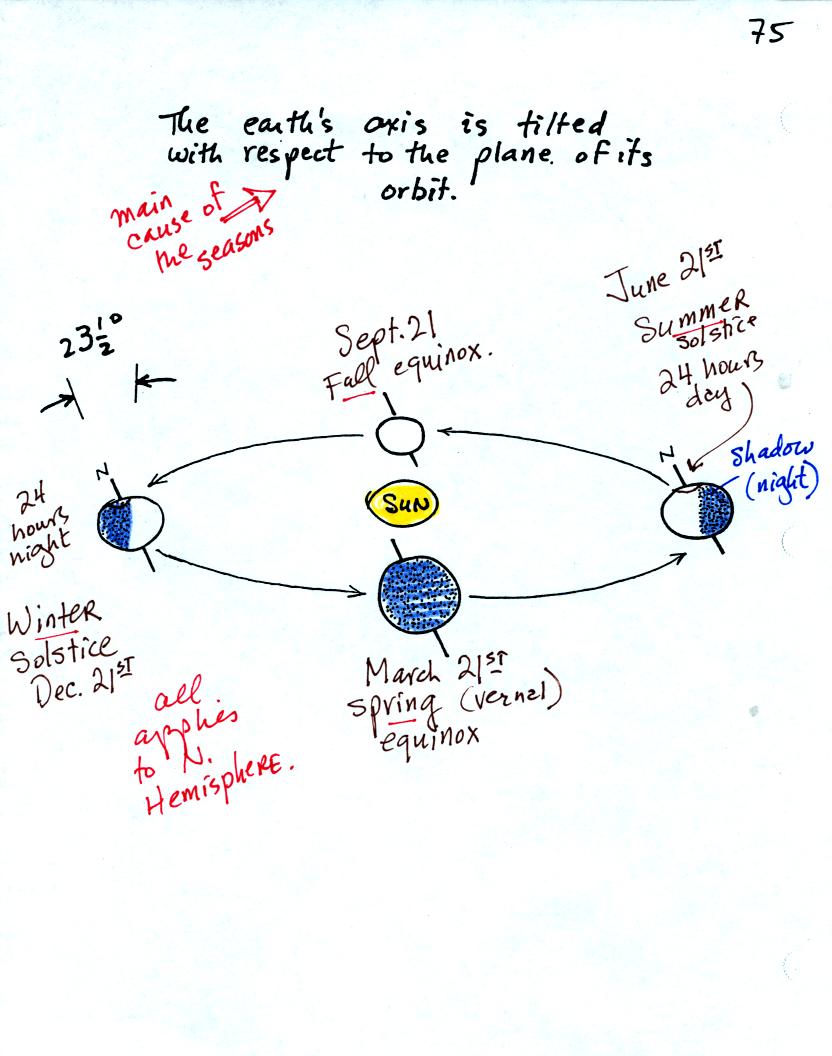 75
The earth's axis is tilted
with respect to the plane of its
orbit.
main
cause of
the seasons
23½°
Sept. 21
Fall equinox.
June 21ST
Summer
Solstice
24 hours
day
N
shadow
(night)
N
24
hours
night
SUN
Winter
Solstice
Dec. 21ST
March 21ST
spring (vernal)
equinox
all
applies
to N.
Hemisphere.